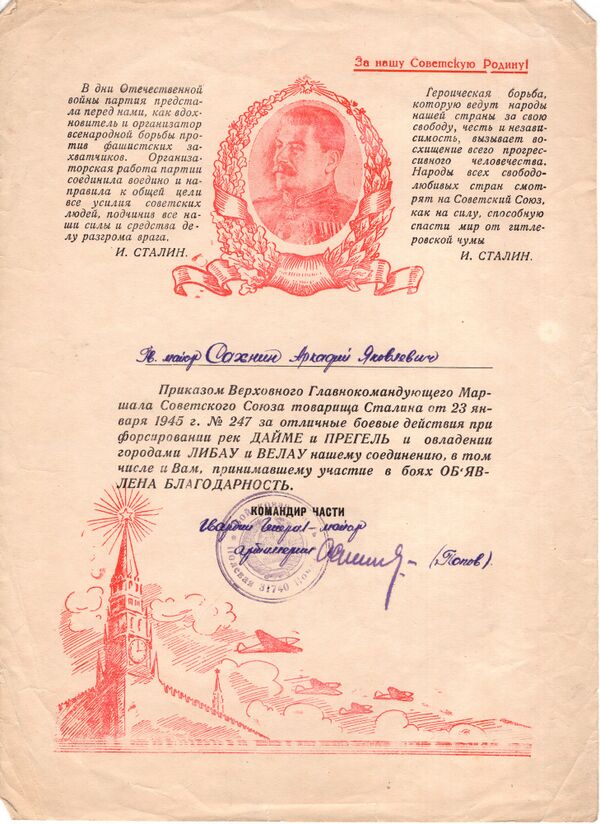 За нашу Советскую Родину!
В дни Отечественной
войны партия предста-
ла перед нами, как вдох-
новитель и организатор
всенародной борьбы про-
тив фашистских за-
хватчиков. Организа-
торская работа партии
соединила воедино и на-
правила к общей цели
все усилия советских
людей, подчинив все на-
ши силы и средства де-
лу разгрома врага.
И. СТАЛИН.
Героическая борьба,
которую ведут народы
нашей страны за свою
свободу, честь и незави-
симость, вызывает во-
схищение всего прогрес-
сивного человечества.
Народы всех свободо-
любивых стран смот-
рят на Советский Союз,
как на силу, способную
спасти мир от гитле-
ровской чумы
И. СТАЛИН.
Гв. майор Сахнин Аркадий Яковлевич
Приказом Верховного Главнокомандующего Мар-
шала Советского Союза товарища Сталина от 23 ян-
варя 1945 г. № 247 за отличные боевые действия при
форсировании рек ДАЙМЕ и ПРЕГЕЛЬ и овладении
городами ЛИБАУ и ВЕЛАУ нашему соединению, в том
числе и Вам, принимавшему участие в боях ОБ'ЯВ-
ЛЕНА БЛАГОДАРНОСТЬ.
КОМАНДИР ЧАСТИ
Гвардии Генерал-майор
артиллерии (Попов).
Полевая 31740